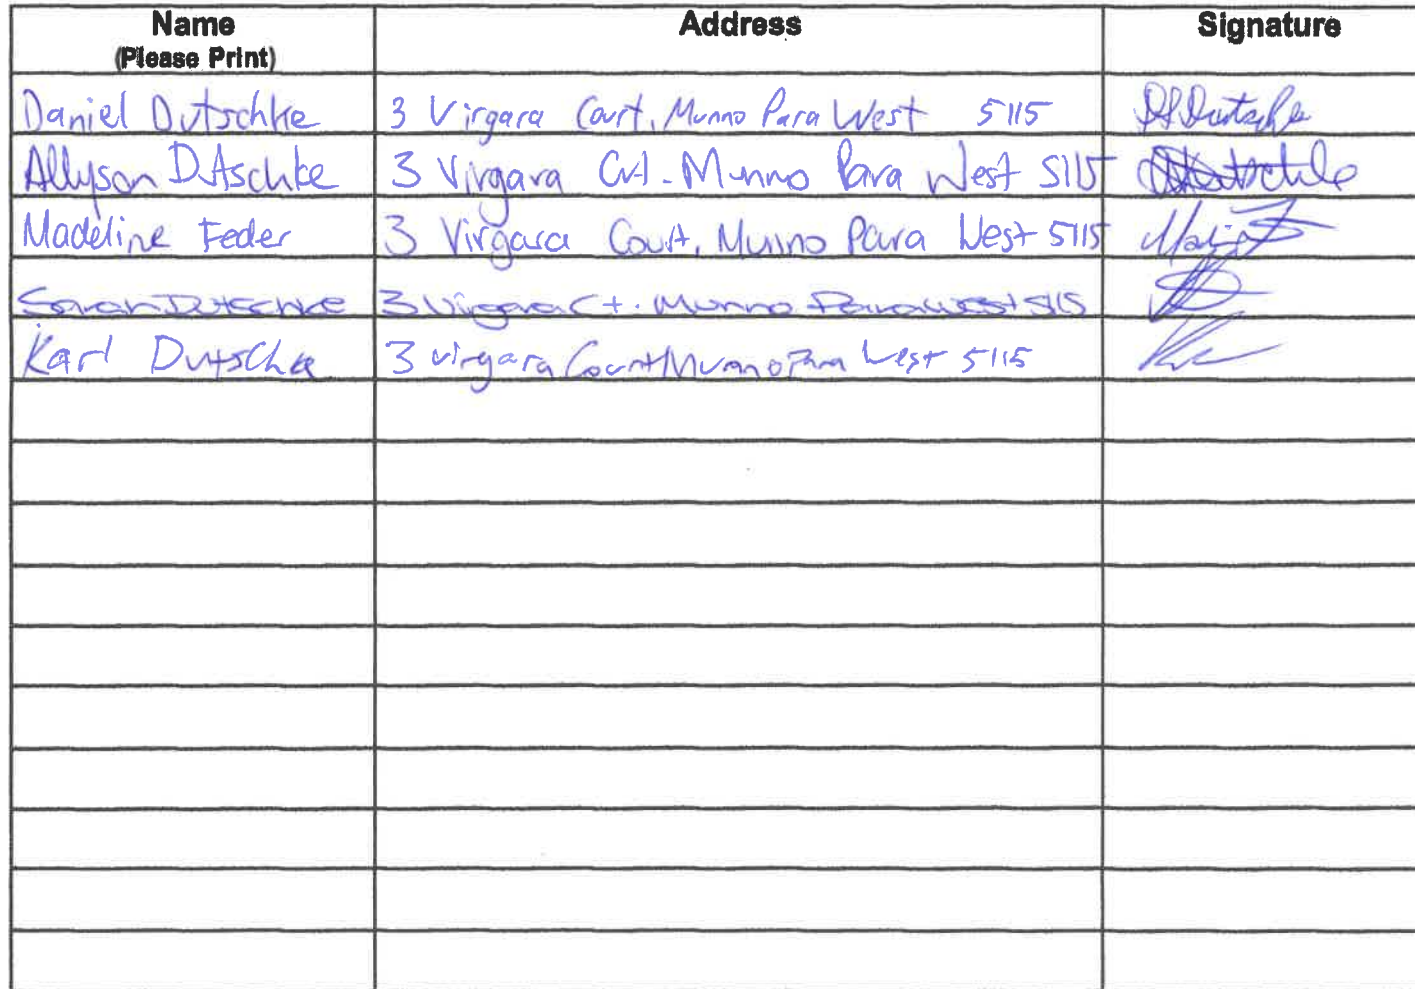 Name Address Signature
(Please Print)
Daniel Dutschke 3 Virgara Court, Munno Para West 5115 Dutschke
Allyson Dutschke 3 Virgara Crt. Munno Para West 5115
Madeline Feder 3 Virgara Court, Munno Para West 5115
Sarah Dutschke 3 Virgara Ct. Munno Para West 5115
Karl Dutschke 3 Virgara Court Munno Para West 5115